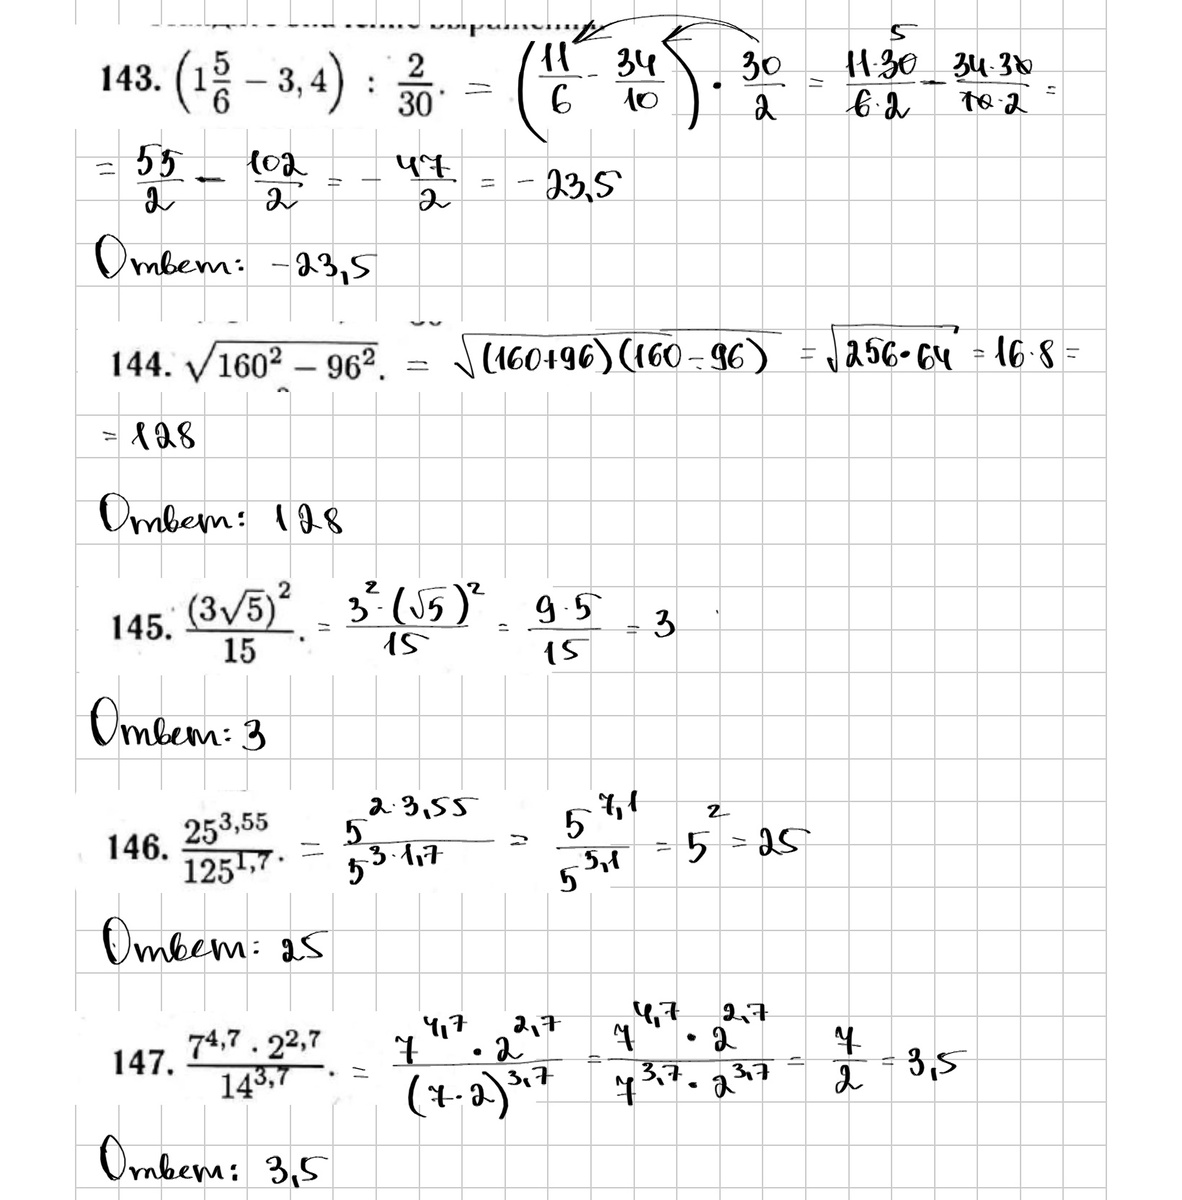 143. (1 5/6 − 3,4) : 2/30. = (11/6 - 34/10) · 30/2 = 11·30/6·2 − 34·30/10·2 =
= 55/2 − 102/2 = − 47/2 = − 23,5
Ответ: −23,5
144. √(160² − 96²). = √((160+96)(160−96)) = √(256·64) = 16·8 =
= 128
Ответ: 128
145. (3√5)²/15. = 3²·(√5)²/15 = 9·5/15 = 3
Ответ: 3
146. 25^3,55/125^1,7. = 5^2·3,55/5^3·1,7 = 5^7,1/5^5,1 = 5² = 25
Ответ: 25
147. 7^4,7 · 2^2,7/14^3,7. = 7^4,7 · 2^2,7/(7·2)^3,7 = 7^4,7 · 2^2,7/7^3,7 · 2^3,7 = 7/2 = 3,5
Ответ: 3,5